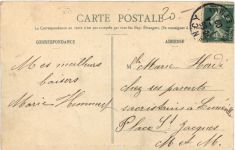 20-
CARTE POSTALE
La Correspondance au verso n'est pas acceptée par tous les Pays Étrangers. (Se renseigner à la Poste)
CORRESPONDANCE
ADRESSE
Mes meilleurs
baisers
Marie
Mlle Marie
chez ses parents
sacristain à Lunéville
Place St Jacques
M et M.